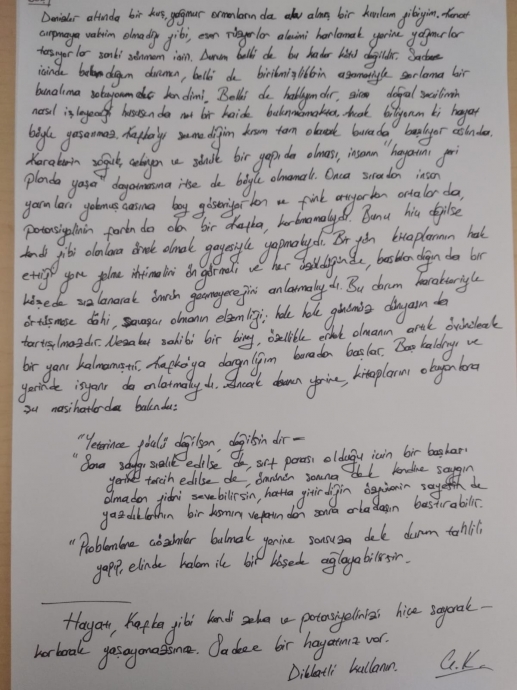 Denizler altında bir kuş, yağmur ormanlarında alev almış bir kıvılcım gibiyim. Kanat
çırpmaya vaktim olmadığı gibi, esen rüzgarlar alevimi harlamak yerine yağmurlar
taşıyorlar sanki sönmem için. Durum belki de bu kadar kötü değildir. Sadece
içinde bulunduğum durumun, belki de biriktirmişliğin
bunalıma sokuyorum kendimi. Belki de haklıyımdır, doğal seçilimin
nasıl işleyeceği hususunda bir kaide bulunmamakta. Ancak biliyorum ki hayat
böyle yaşanmaz. Kafka'yı sevmediğim kısım tam olarak burada başlıyor aslında.
Karakterin soğuk, çekingen ve sönük bir yapıda olması, insanın "hayatını geri
planda yaşa" dayatmasına itse de böyle olmamalı. Onca sıradan insan
yarınları yokmuşcasına boy gösteriyorken ve fink atıyorken ortalarda,
potansiyelinin farkında olan bir Kafka, korkmamalıydı. Bunu hiç değilse
kendi gibi olanlara örnek olmak gayesiyle yapmalıydı. Bir gün kitaplarının hak
ettiği yere gelme ihtimalini öngörmeli ve her üzüldüğünde, baskılandığında bir
köşede sızlanarak ömrün geçmeyeceğini anlatmalıydı. Bu durum karakteriyle
örtüşmese dahi, savaşçı olmanın elzemliği; hele hele günümüz dünyasında
tartışılmazdır. Nezaket sahibi bir birey, özellikle erkek olmanın artık övünülecek
bir yanı kalmamıştır. Kafka'ya dargınlığım buradan başlar. Başkaldırıyı ve
yerinde isyanı da anlatmalıydı. Ancak bunun yerine, kitaplarını okuyanlara
şu nasihatlarda bulundu:
"Yeterince güçlü değilsen, değilsindir —
"Sana saygısızlık edilse de, sırf parası olduğu için bir başkası
yerine tercih edilse de, ömrünün sonuna dek kendine saygın
olmadan birini sevebilirsin, hatta yitirdiğin özgüvenin sayesinde
yazdıklarının bir kısmını vefatından sonra arkadaşın bastırabilir.
"Problemlere çözümler bulmak yerine sonsuza dek durum tahlili
yapıp, elinde kalem ile bir köşede ağlayabilirsin.
Hayatı, Kafka gibi kendi zeka ve potansiyelinizi hiçe sayarak —
korkarak yaşayamazsınız. Sadece bir hayatınız var.
Dikkatli kullanın.